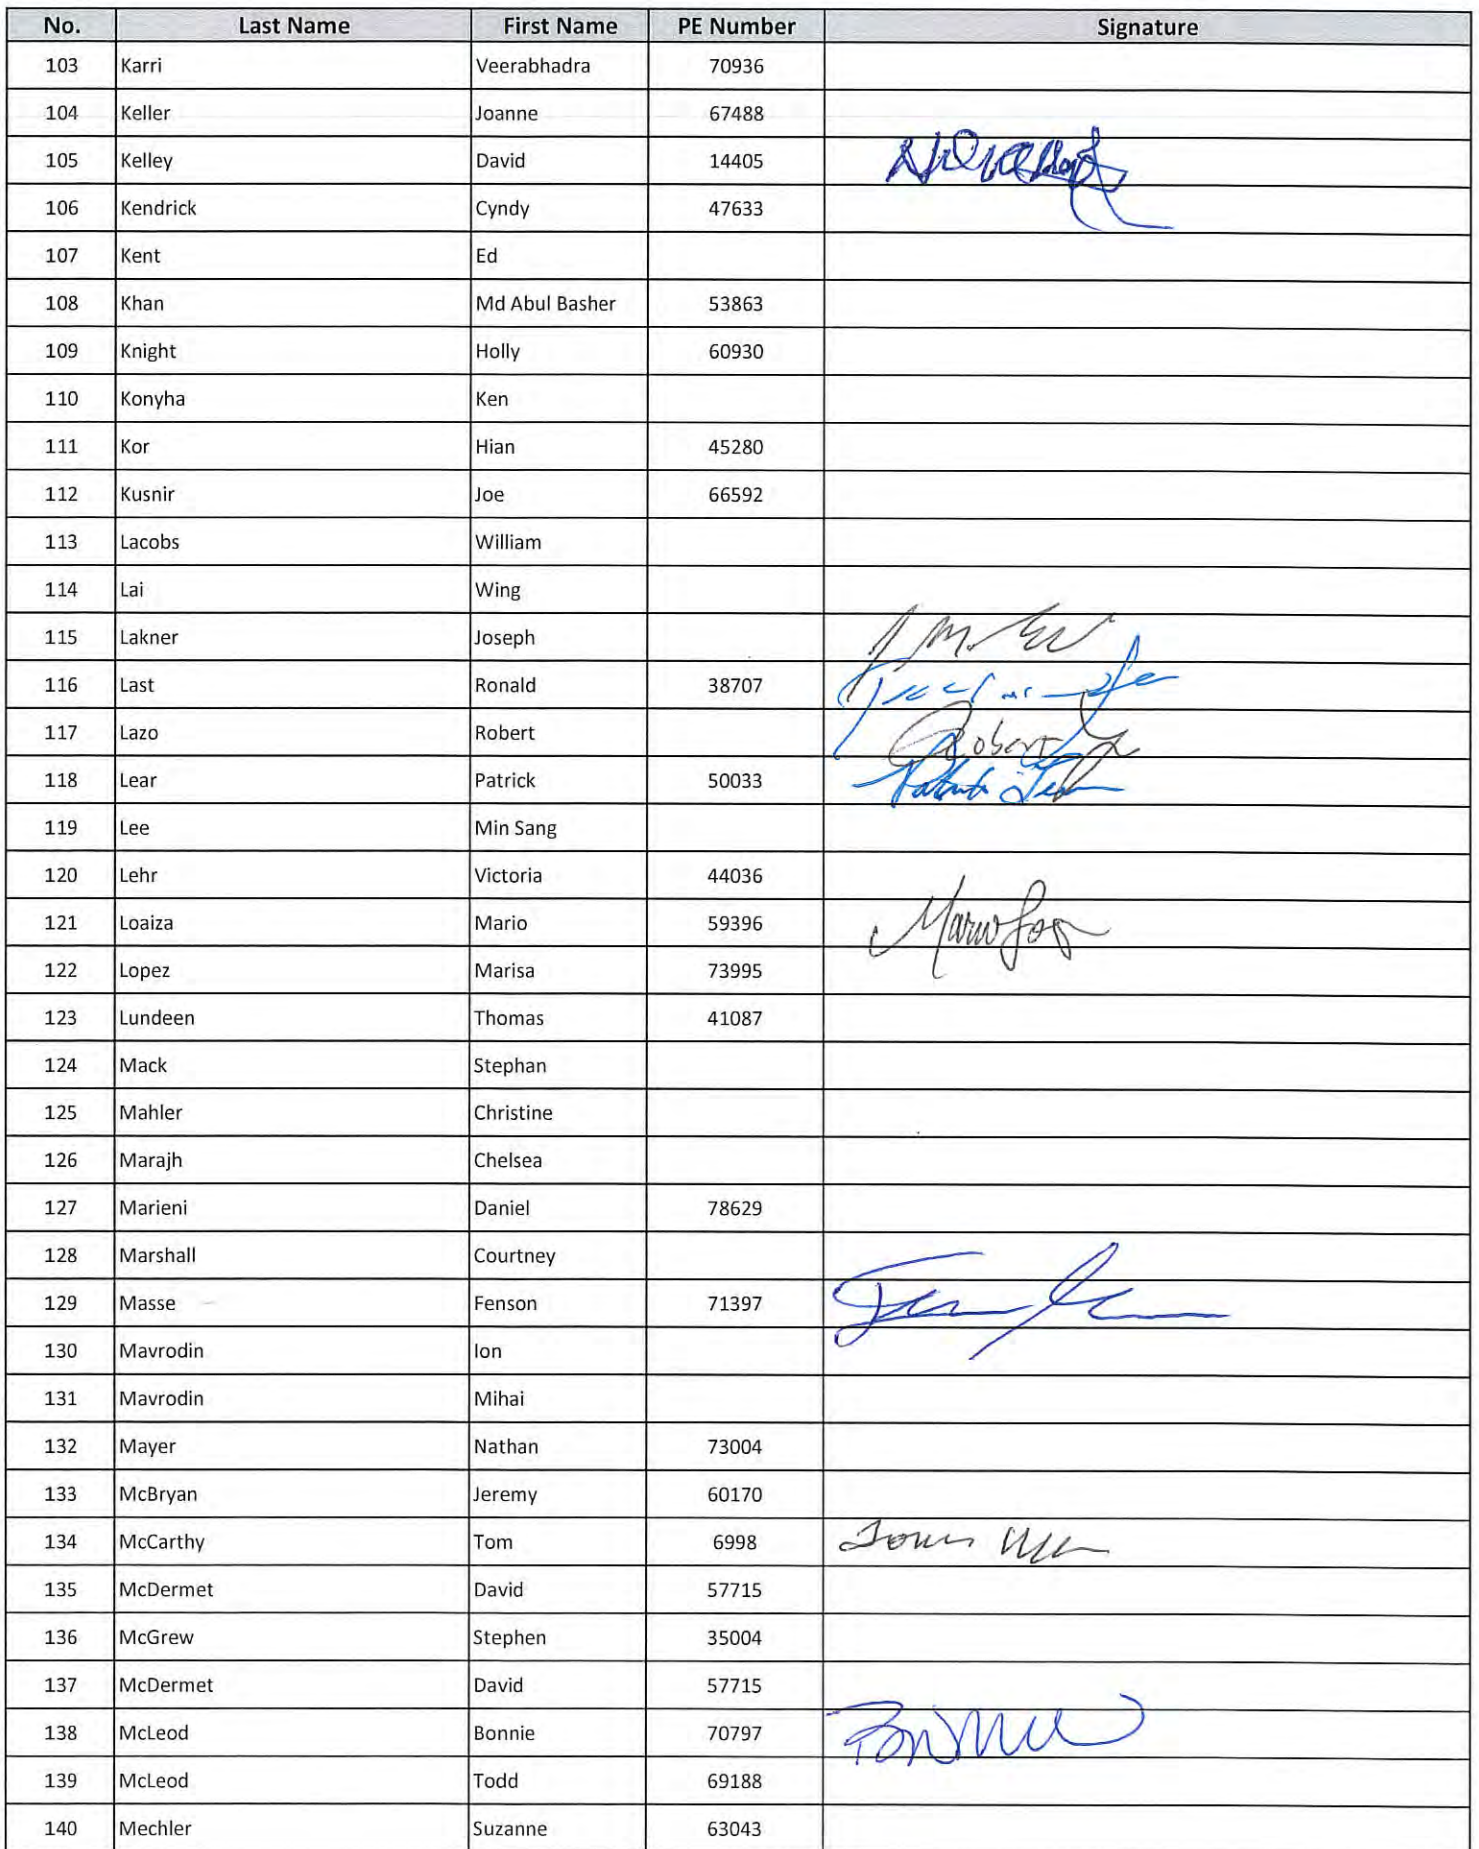 No. Last Name First Name PE Number Signature
103 Karri Veerabhadra 70936
104 Keller Joanne 67488
105 Kelley David 14405
106 Kendrick Cyndy 47633
107 Kent Ed
108 Khan Md Abul Basher 53863
109 Knight Holly 60930
110 Konyha Ken
111 Kor Hian 45280
112 Kusnir Joe 66592
113 Lacobs William
114 Lai Wing
115 Lakner Joseph
116 Last Ronald 38707
117 Lazo Robert Robert
118 Lear Patrick 50033
119 Lee Min Sang
120 Lehr Victoria 44036
121 Loaiza Mario 59396 Mario
122 Lopez Marisa 73995
123 Lundeen Thomas 41087
124 Mack Stephan
125 Mahler Christine
126 Marajh Chelsea
127 Marieni Daniel 78629
128 Marshall Courtney
129 Masse Fenson 71397
130 Mavrodin Ion
131 Mavrodin Mihai
132 Mayer Nathan 73004
133 McBryan Jeremy 60170
134 McCarthy Tom 6998
135 McDermet David 57715
136 McGrew Stephen 35004
137 McDermet David 57715
138 McLeod Bonnie 70797
139 McLeod Todd 69188
140 Mechler Suzanne 63043